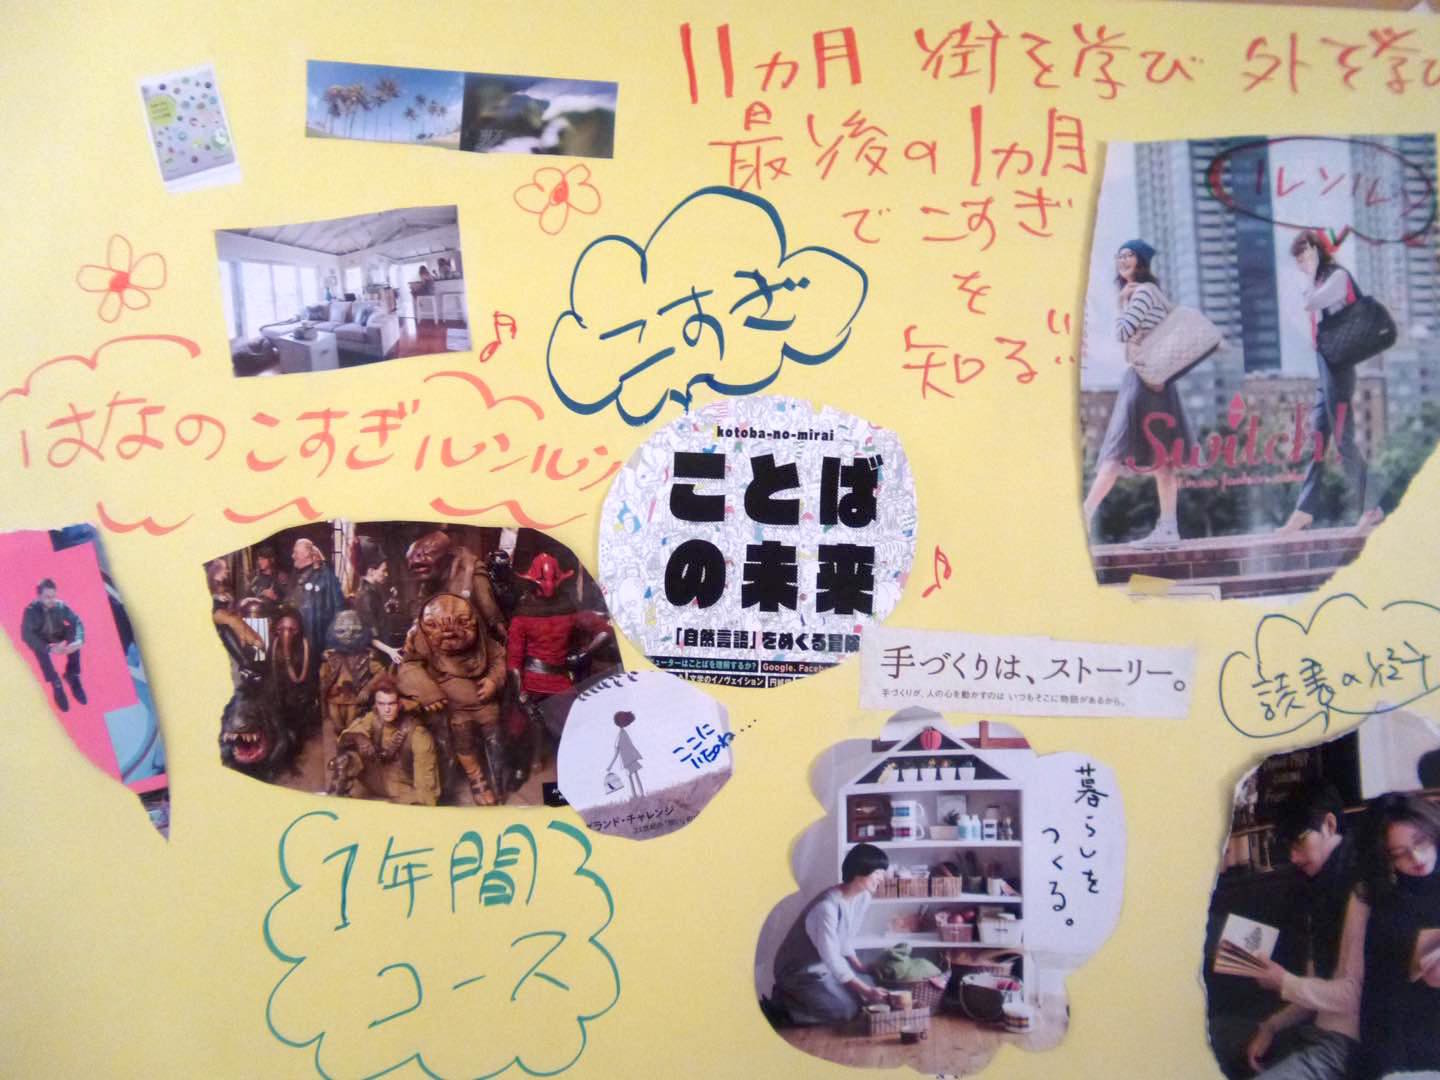 11ヵ月 街を学び 外を学び
最後の1ヵ月
でこすぎ
を
知る!!
ルンルン
こすぎ
はなのこすぎルンルン
Switch!
kotoba-no-mirai
ことば
の未来
「自然言語」をめぐる冒険
ューターはことばを理解するか? Google, Faceb
文学のイノヴェイション
手づくりは、ストーリー。
手づくりが、人の心を動かすのは いつもそこに物語があるから。
読書の
ここに
グランド・チャレンジ
暮らしを
つくる。
1年間
コース